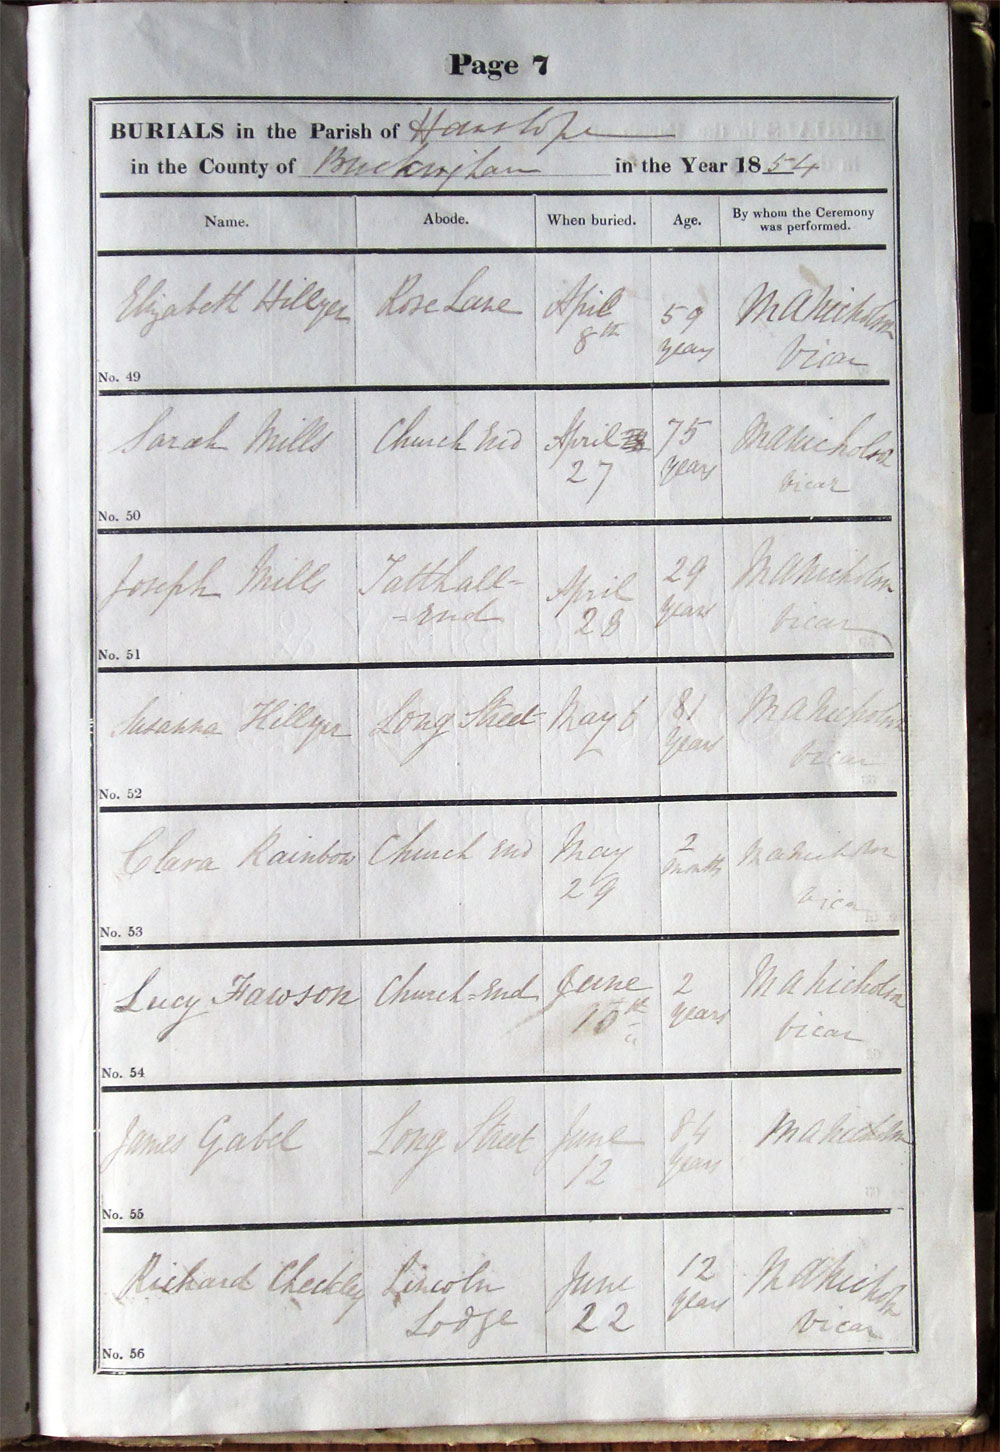 Page 7
BURIALS in the Parish of Hanslope
in the County of Buckingham in the Year 1854
Name. Abode. When buried. Age. By whom the Ceremony was performed.
Elizabeth Hillyer Rose Lane April 8th 59 years M A Nicholson Vicar
No. 49
Sarah Mills Church End April 27 75 years M A Nicholson Vicar
No. 50
Joseph Mills Tatthall-
=End April 28 29 years M A Nicholson Vicar
No. 51
Susanna Hillyer Long Street May 6 81 years M A Nicholson Vicar
No. 52
Clara Rainbow Church End May 29 2 months M A Nicholson Vicar
No. 53
Lucy Fawson Church=End June 2 years M A Nicholson Vicar
No. 54
James Gabel Long Street June 12 84 years M A Nicholson
No. 55
Richard Checkley Lincoln Lodge June 22 12 years M A Nicholson Vicar
No. 56